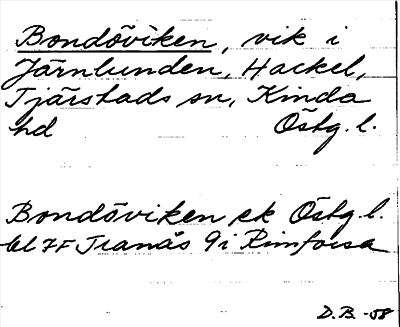 Bondöviken, vik i
Järnlunden, Hackel,
Tjärstads sn, Kinda
hd Östg. l.
Bondöviken ek Östg. l.
bl 7F Tranås 9i Rimforsa
D.B. -58